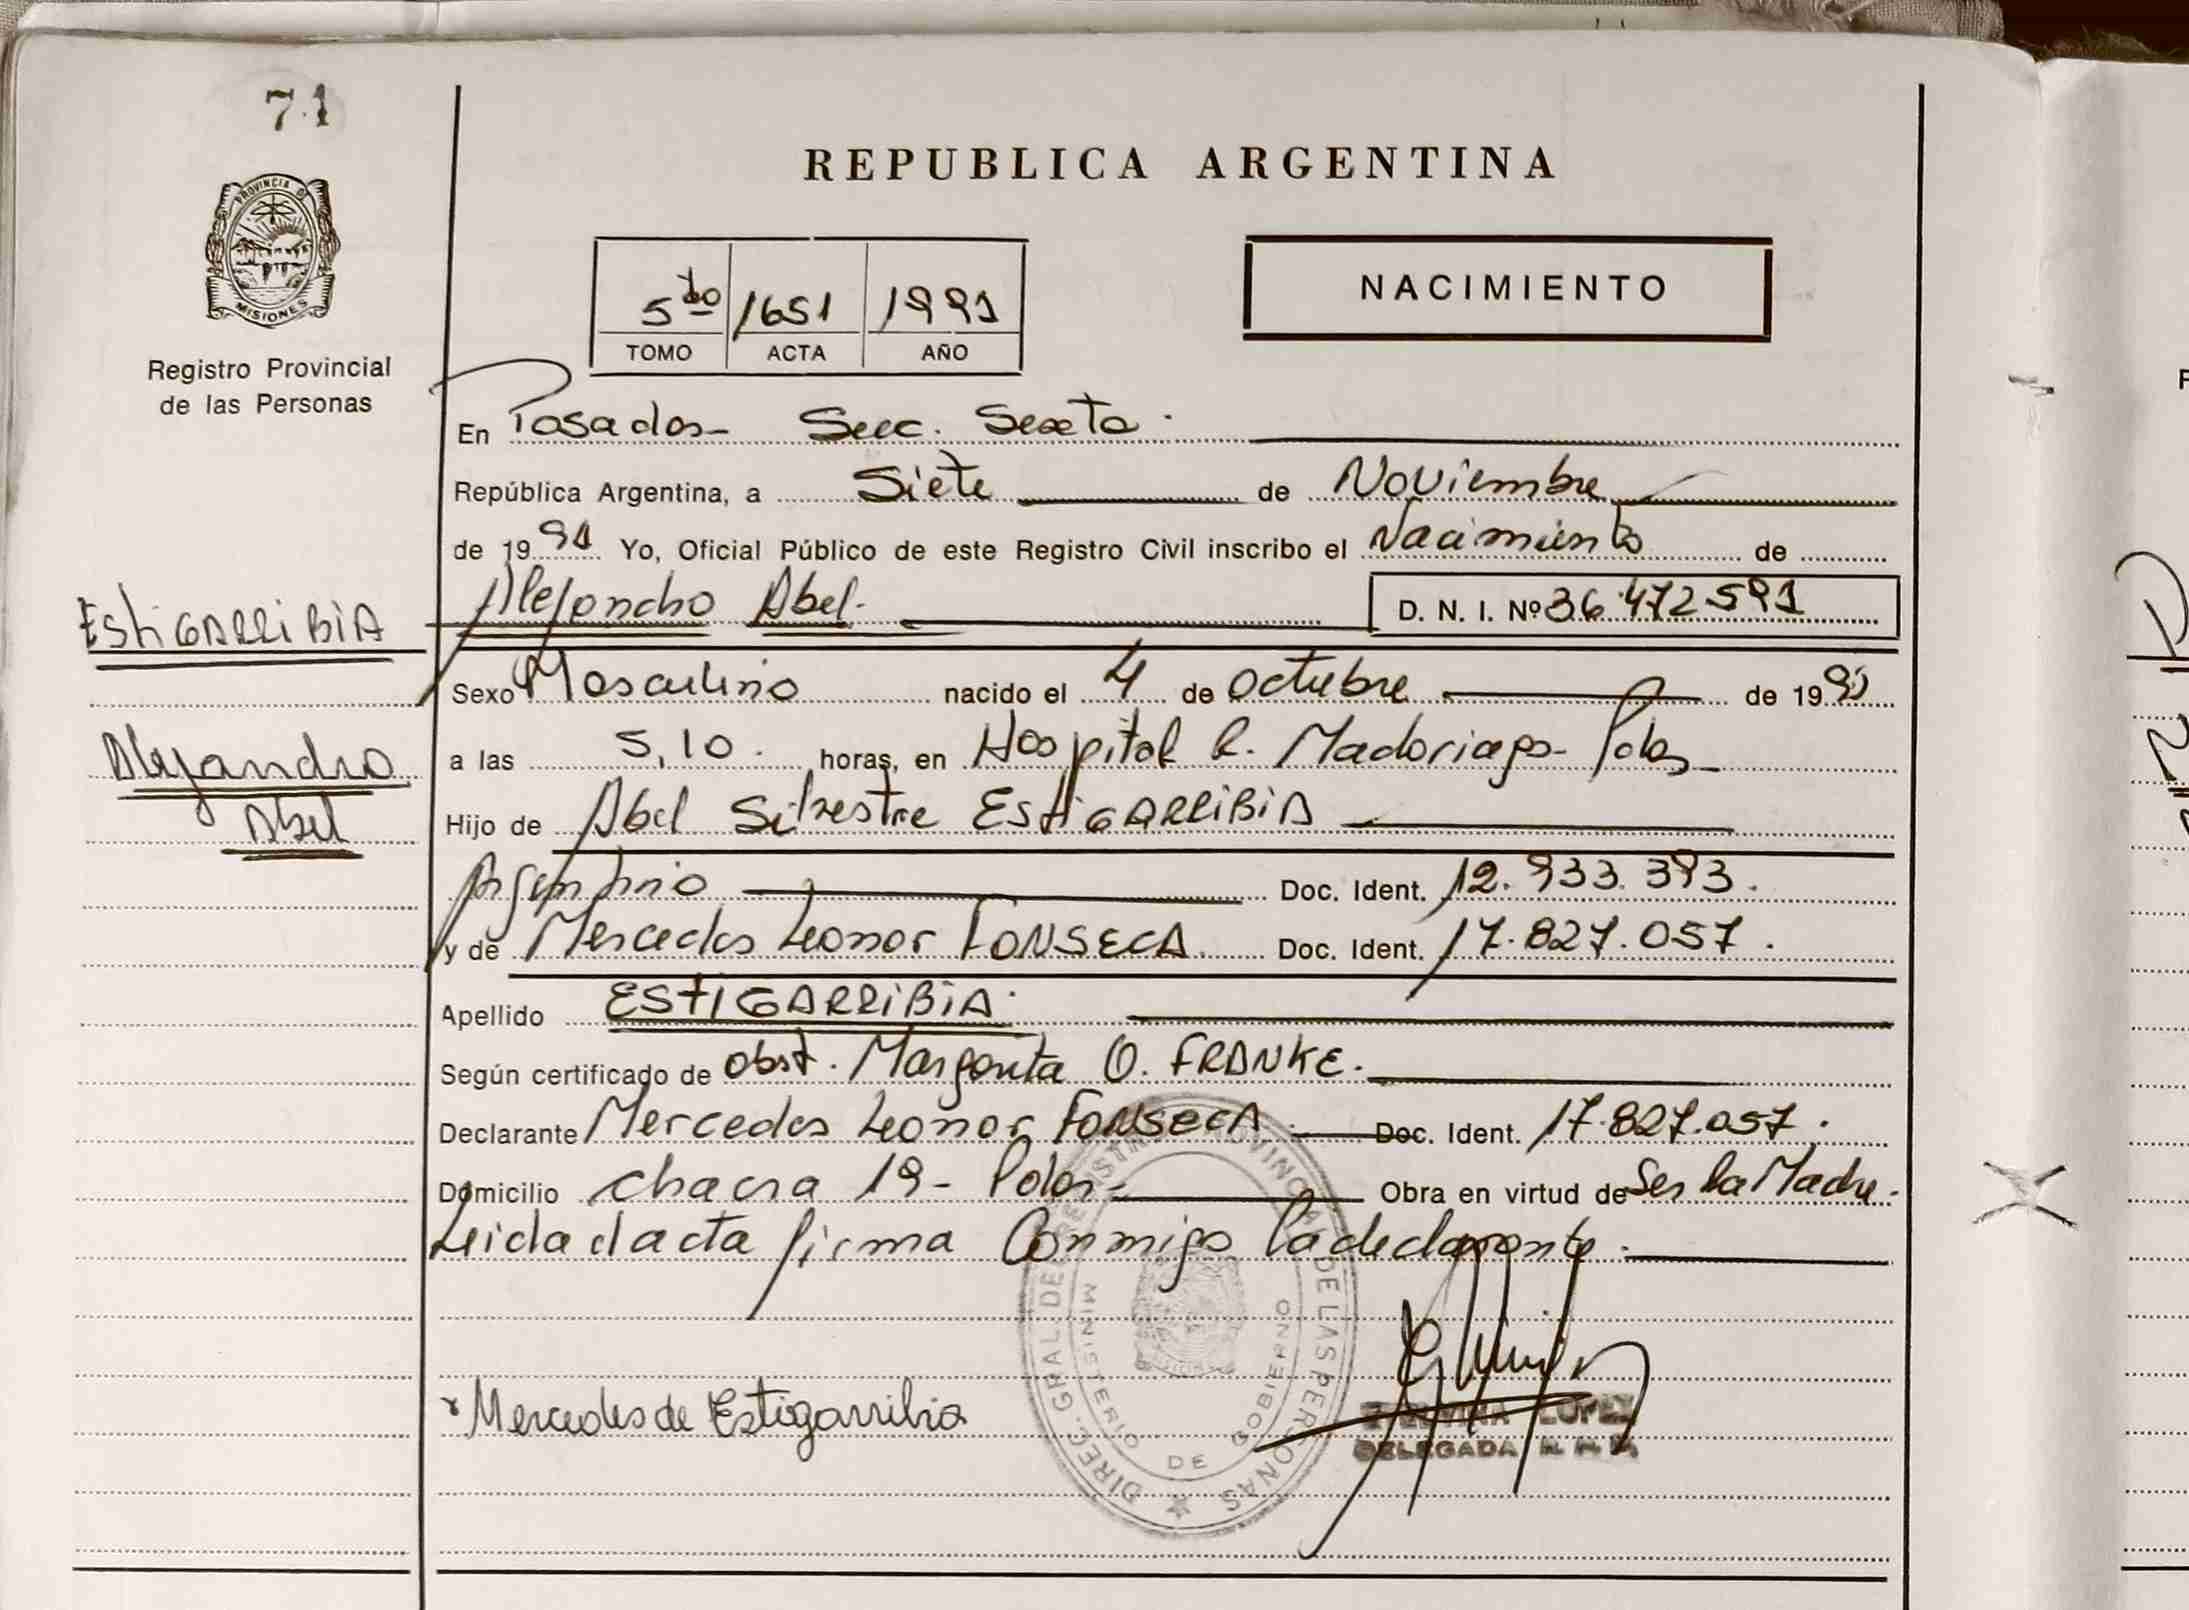 71
PROVINCIA DE
MISIONES
Registro Provincial
de las Personas
REPUBLICA ARGENTINA
5to 1651 1991
TOMO ACTA AÑO
NACIMIENTO
En Posadas- Secc. Sexta.
República Argentina, a Siete de Noviembre
de 1991 Yo, Oficial Público de este Registro Civil inscribo el Nacimiento de
Alejandro Abel.
D. N. I. Nº 36.472591
ESTIGARRIBIA
Alejandro
Abel
Sexo Masculino nacido el 4 de octubre de 1991
a las 5,10. horas, en Hospital R. Madariaga- Pdas_
Hijo de Abel Silvestre ESTIGARRIBIA
Argentino Doc. Ident. 12.933.393.
y de Mercedes Leonor FONSECA Doc. Ident. 17.827.057.
Apellido ESTIGARRIBIA.
Según certificado de obst. Margarita O. FRANKE.
Declarante Mercedes Leonor FONSECA Doc. Ident. 17.827.057.
Domicilio chacra 19- Pdas- Obra en virtud de Ser la Madre.
Leida el acta firma Conmigo la declarante.
DIREC. GRAL. DE REGISTRO PROVINCIAL DE LAS PERSONAS
MINISTERIO DE GOBIERNO
Mercedes de Estigarribia
LOPEZ
DELEGADA